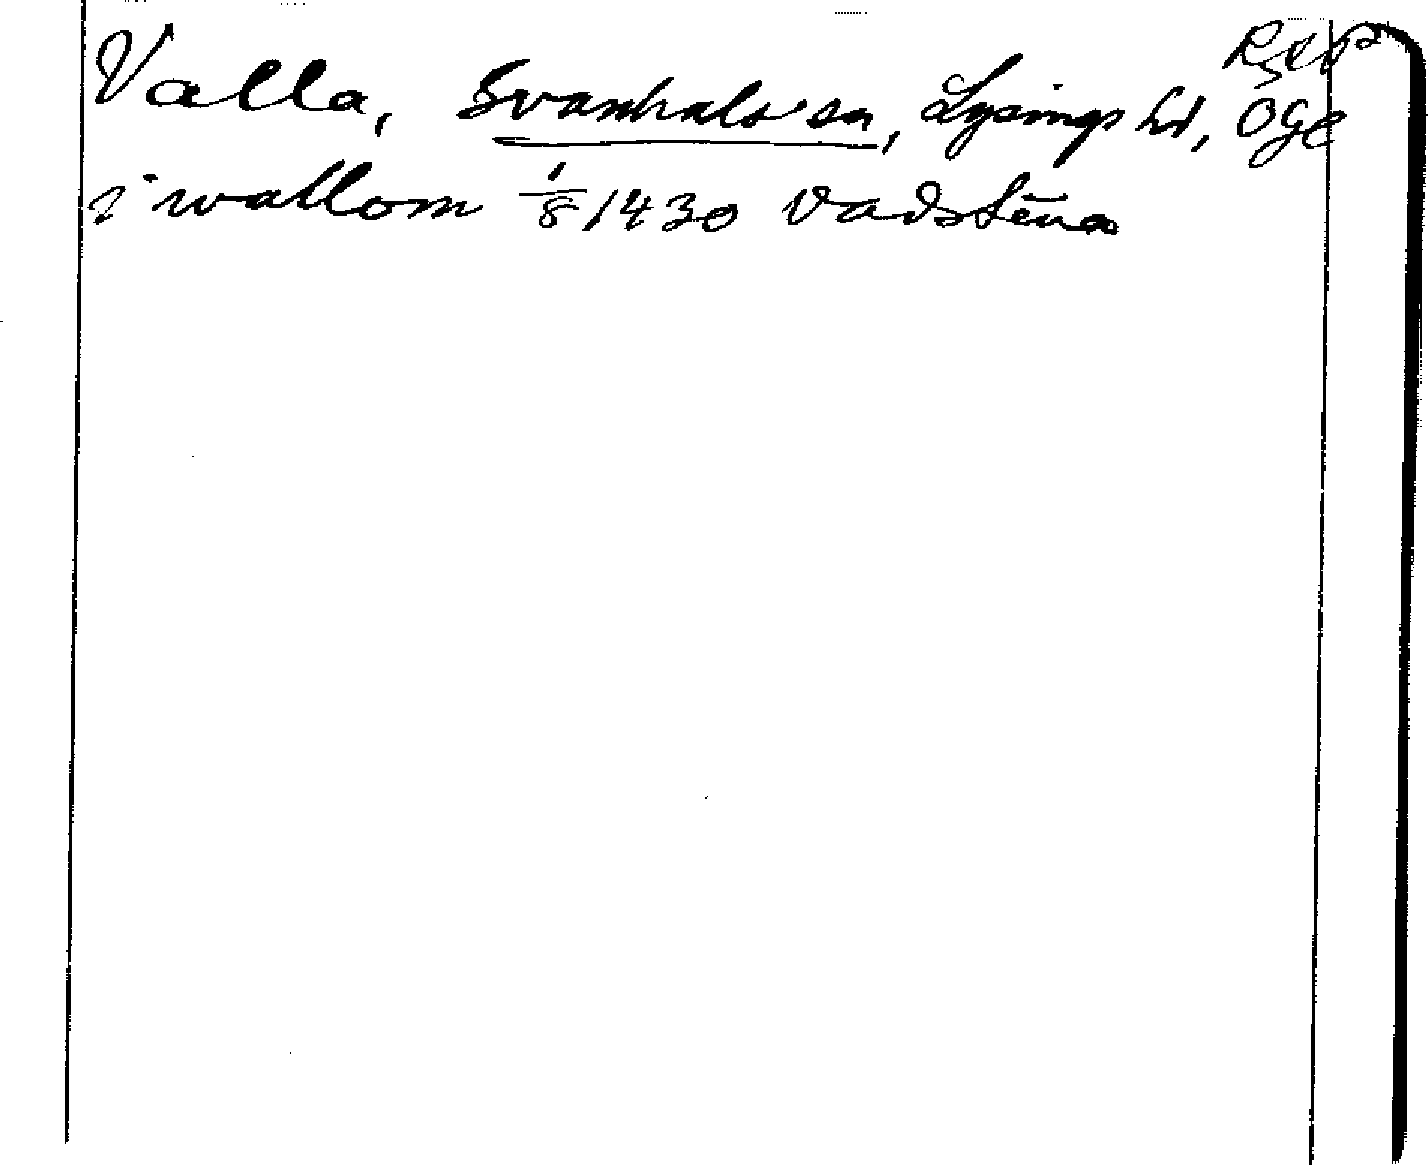 RzPp
Valla, Svanhals sn, Lysings hd, Ögl
i wallom 1/8 1430 Vadstena